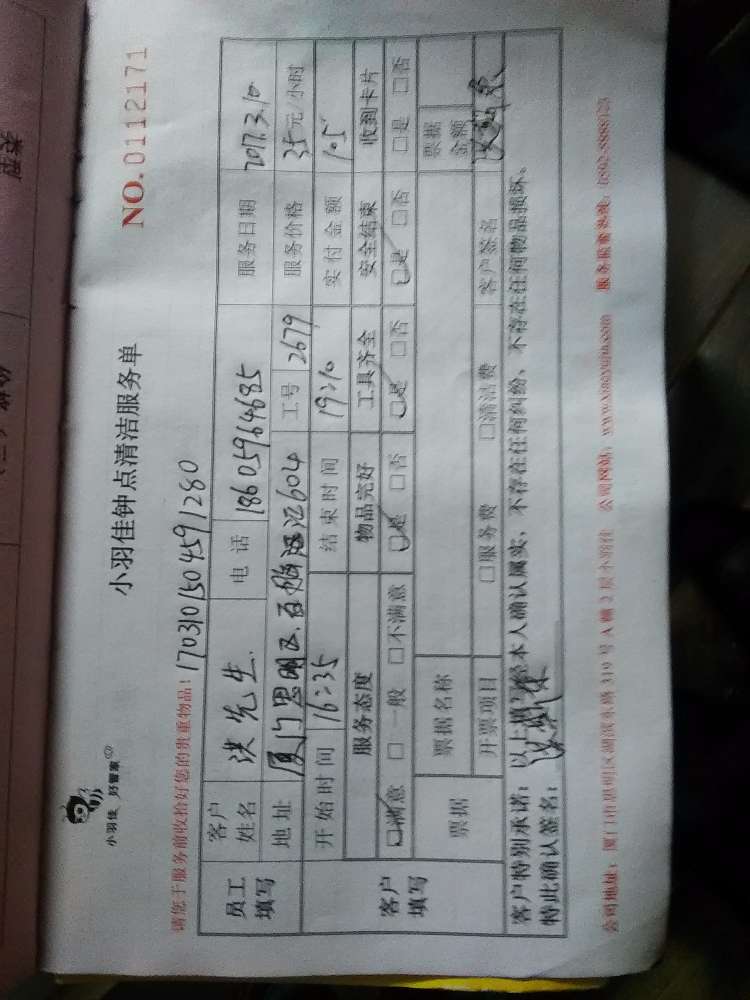 小羽佳 好管家
小羽佳钟点清洁服务单
NO.0112171
请您于服务前收拾好您的贵重物品! 1703101504591280
员工填写
客户姓名 洪先生 电话 18605964685 服务日期 2017.3.10
地址 厦门思明区 604 工号 2679 服务价格 35元/小时
开始时间 16:35 结束时间 19:10 实付金额 105
客户填写
服务态度 物品完好 工具齐全 安全结束 收到卡片
□满意 □一般 □不满意 □是 □否 □是 □否 □是 □否 □是 □否
票据 票据名称 票据金额
开票项目 □服务费 □清洁费 客户签名
客户特别承诺: 以上填写经本人确认属实, 不存在任何纠纷、不存在任何物品损坏。
特此确认签名:
公司地址: 厦门市思明区湖滨东路319号A幢2层小羽佳 公司网站: www.xiaoyujia.com 服务监督热线: 0592-8888123